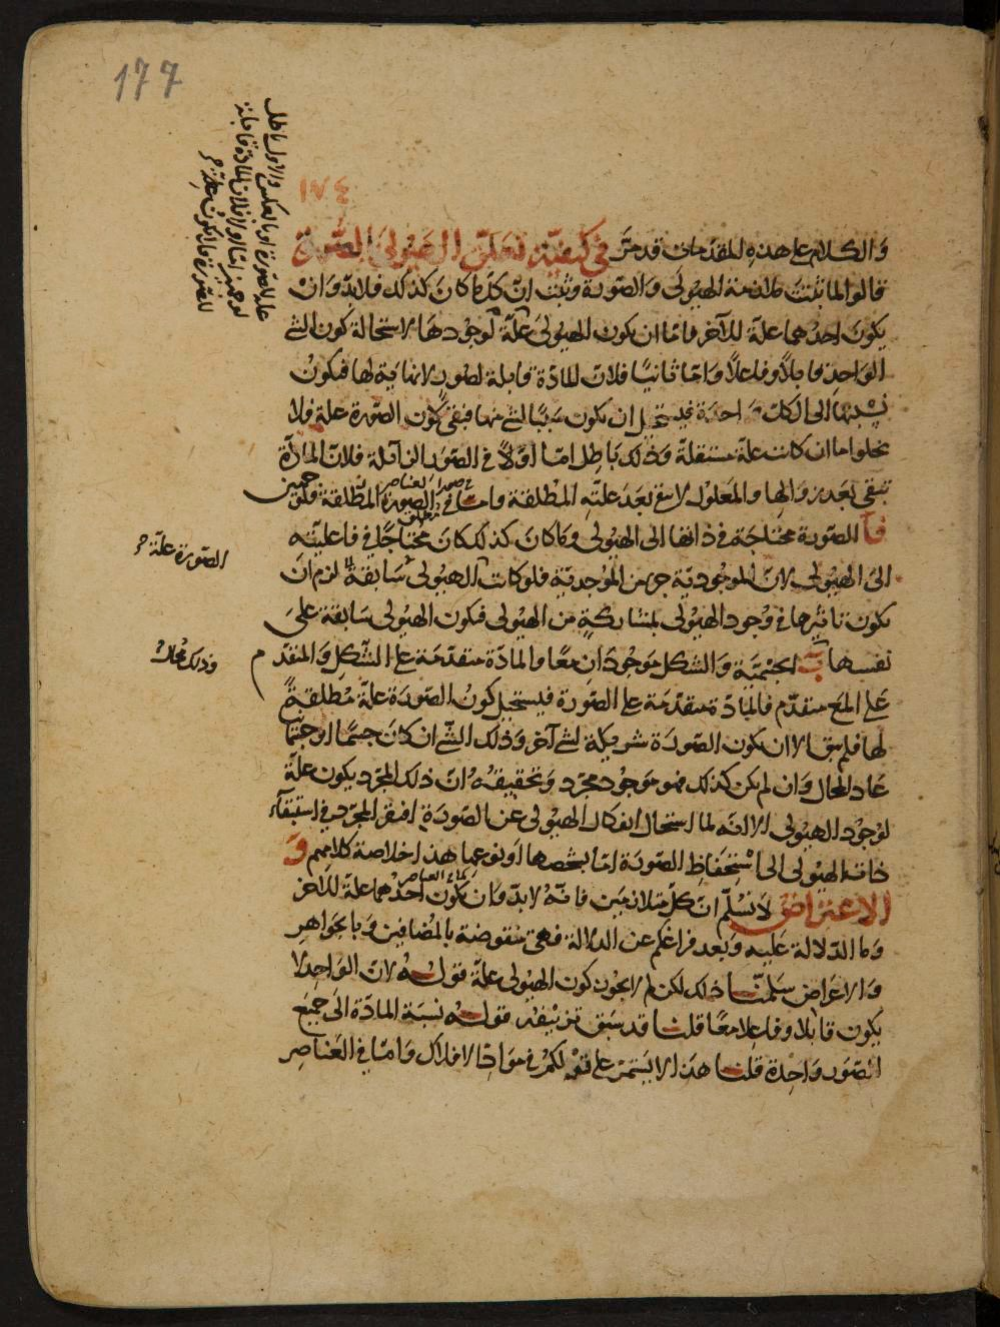 177
١٧٤
والكلام على هذه المقدمات قد مر في كيفية تعلق الهيولى بالصورة
قالوا لما ثبتت ملازمة الهيولى والصورة وثبت ان كل ما كان كذلك فلا بد وان
يكون احدهما علة للآخر فاما ان يكون الهيولى علة لوجودها لاستحالة كون الشئ
الواحد قابلا وفاعلا واما ثانيا فلان للمادة قابلة لصور لا نهاية لها فيكون
نسبتها الى الكل واحدة فيستحيل ان يكون سببا لشئ منها فبقى كون الصورة علة فلا
يخلو اما ان كانت علة مستقلة وذلك باطل اما اولا في الصور الزائلة فلان المادة
تبقى بعد زوالها والمعلول لا يبقى بعد علته المطلقة واما في الصورة المطلقة فلوجهين
صور العناصر
فآ الصورة محتاجة في ذاتها الى الهيولى وما كان كذلك كان محتاجا في فاعليته
الى الهيولى لان الموجودية جزء من الموجدية فلو كانت الهيولى سابقة لزم ان
يكون تاثيرها في وجود الهيولى بمشاركة من الهيولى فيكون الهيولى سابقة على
نفسها ب الجسمية والشكل موجودان معا والمادة متقدمة على الشكل والمتقدم
على المع متقدم فالمادة متقدمة على الصورة فيستحيل كون الصورة علة مطلقة
لها فلم يبق الا ان يكون الصورة شريكة لشئ آخر وذلك الشئ ان كان جسما او جسمانيا
عاد المحال وان لم يكن كذلك فهو موجود مجرد وتحقيقه ان ذلك المجرد يكون علة
لوجود الهيولى الا انه لما استحال انفكاك الهيولى عن الصورة افتقر المجرد في استبقاء
ذات الهيولى الى استحفاظ الصورة اما بشخصها او نوعها هذا خلاصة كلامهم و
الاعتراض لا نسلم ان كل متلازمين فانه لا بد وان يكون احدهما علة للآخر
وما الدلالة عليه وبعد فراغكم عن الدلالة فهي منقوضة بالمضافين وبالجواهر
والاعراض سلمنا ذلك لكن لم لا يجوز كون الهيولى علة قوله لان الواحد لا
يكون قابلا وفاعلا معا قلنا قد سبق تزييفه قوله نسبة المادة الى جميع
الصور واحدة قلنا هذا لا يستمر على قولكم في مواد الافلاك واما في العناصر
علة للصورة او بالعكس والاول باطل
اما اولا فلان المادة قابلة
للصورة فلا تكون علة
الصورة علة
وذلك محال